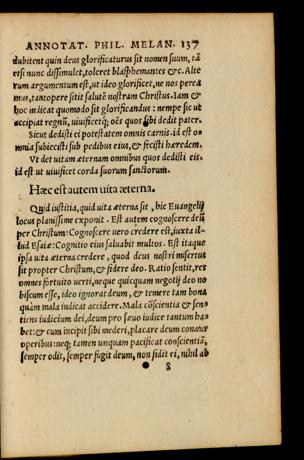 ANNOTAT. PHIL. MELAN. 137
dubitent quin deus glorificaturus sit nomen suum, tã
etsi nunc dissimulet, toleret blasphemantes &c. Alte
rum argumentum est, ut ideo glorificet, ne nos perea
mus, tantopere sitit salutẽ nostram Christus. Iam &
hoc indicat quomodo sit glorificandus : nempe sic ut
accipiat regnũ, uiuificetq; oẽs quos sibi dedit pater.
Sicut dedisti ei potestatem omnis carnis. id est o-
mnia subiecisti sub pedibus eius, & fecisti hæredem.
Vt det uitam æternam omnibus quos dedisti eis.
id est ut uiuificet corda suorum sanctorum.
Hæc est autem uita æterna.
Quid iustitia, quid uita æterna sit, hic Euangelij
locus planissime exponit. Est autem cognoscere deũ
per Christum: Cognoscere uero credere est, iuxta il-
lud Esaiæ: Cognitio eius saluabit multos. Est itaque
ipsa uita æterna credere, quod deus nostri misertus
sit propter Christum, & fidere deo. Ratio sentit, res
omnes fortuito uerti, neque quicquam negotij deo no
biscum esse, ideo ignorat deum, & temere tam bona
quàm mala iudicat accidere. Mala cõscientia & sen-
tiens iudicium dei, deum pro sæuo iudice tantum ha
bet: & cum incipit sibi mederi, placare deum conatur
operibus: neq; tamen unquam pacificat conscientiã,
semper odit, semper fugit deum, non fidit ei, nihil ab
S